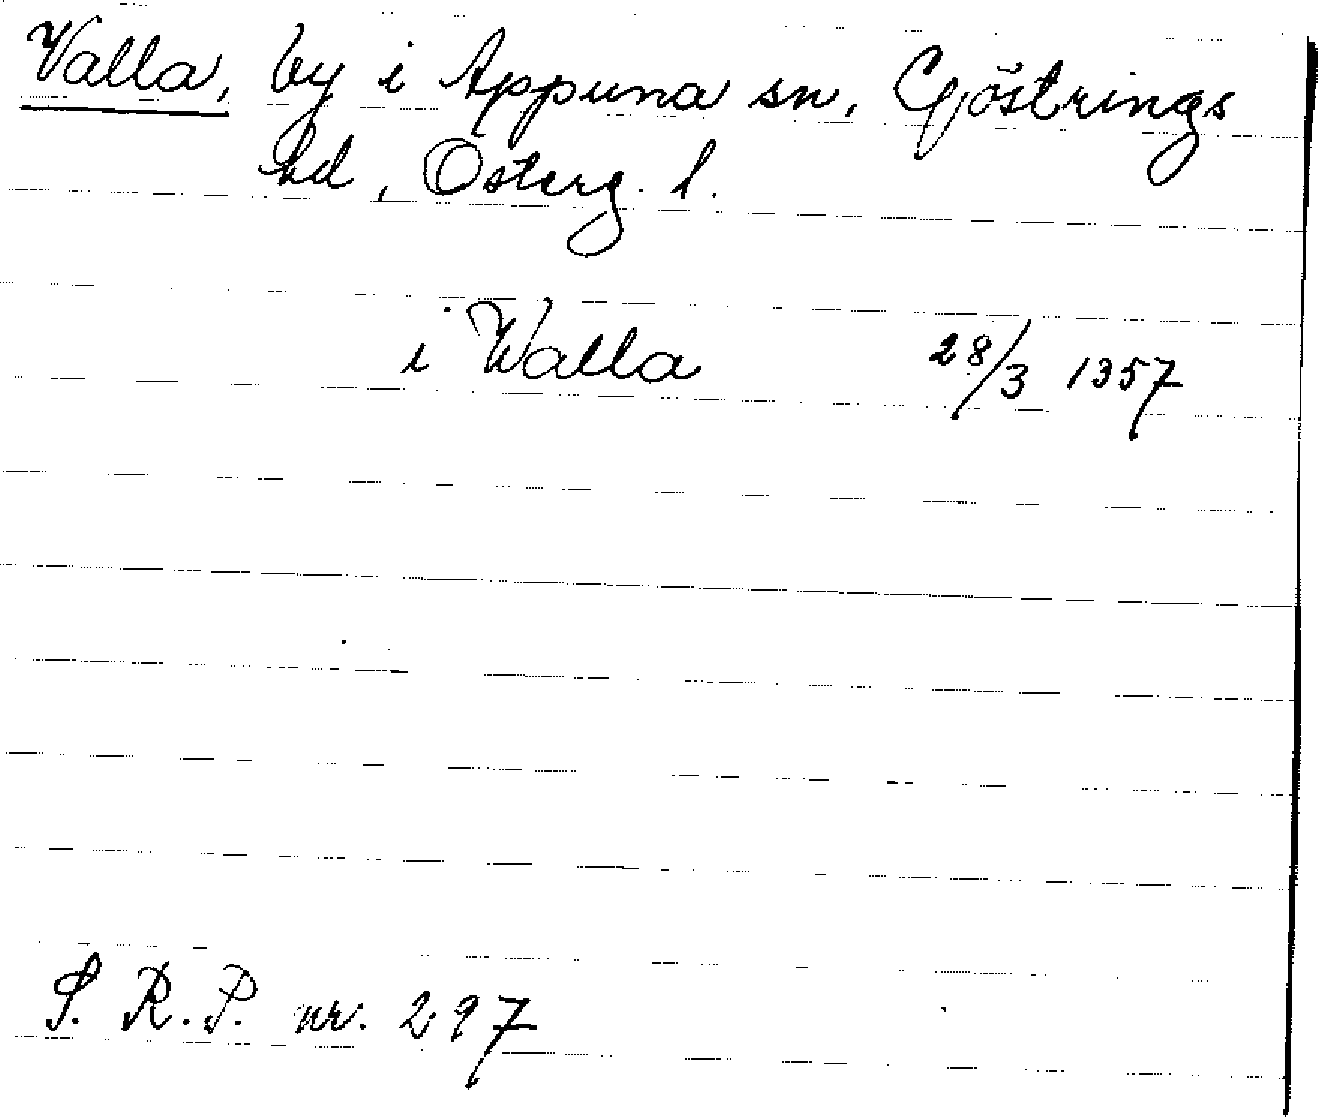 Valla, by i Appuna sn, Gjöstrings
hd, Österg. l.
i Walla 28/3 1357
S. R. P. nr. 297